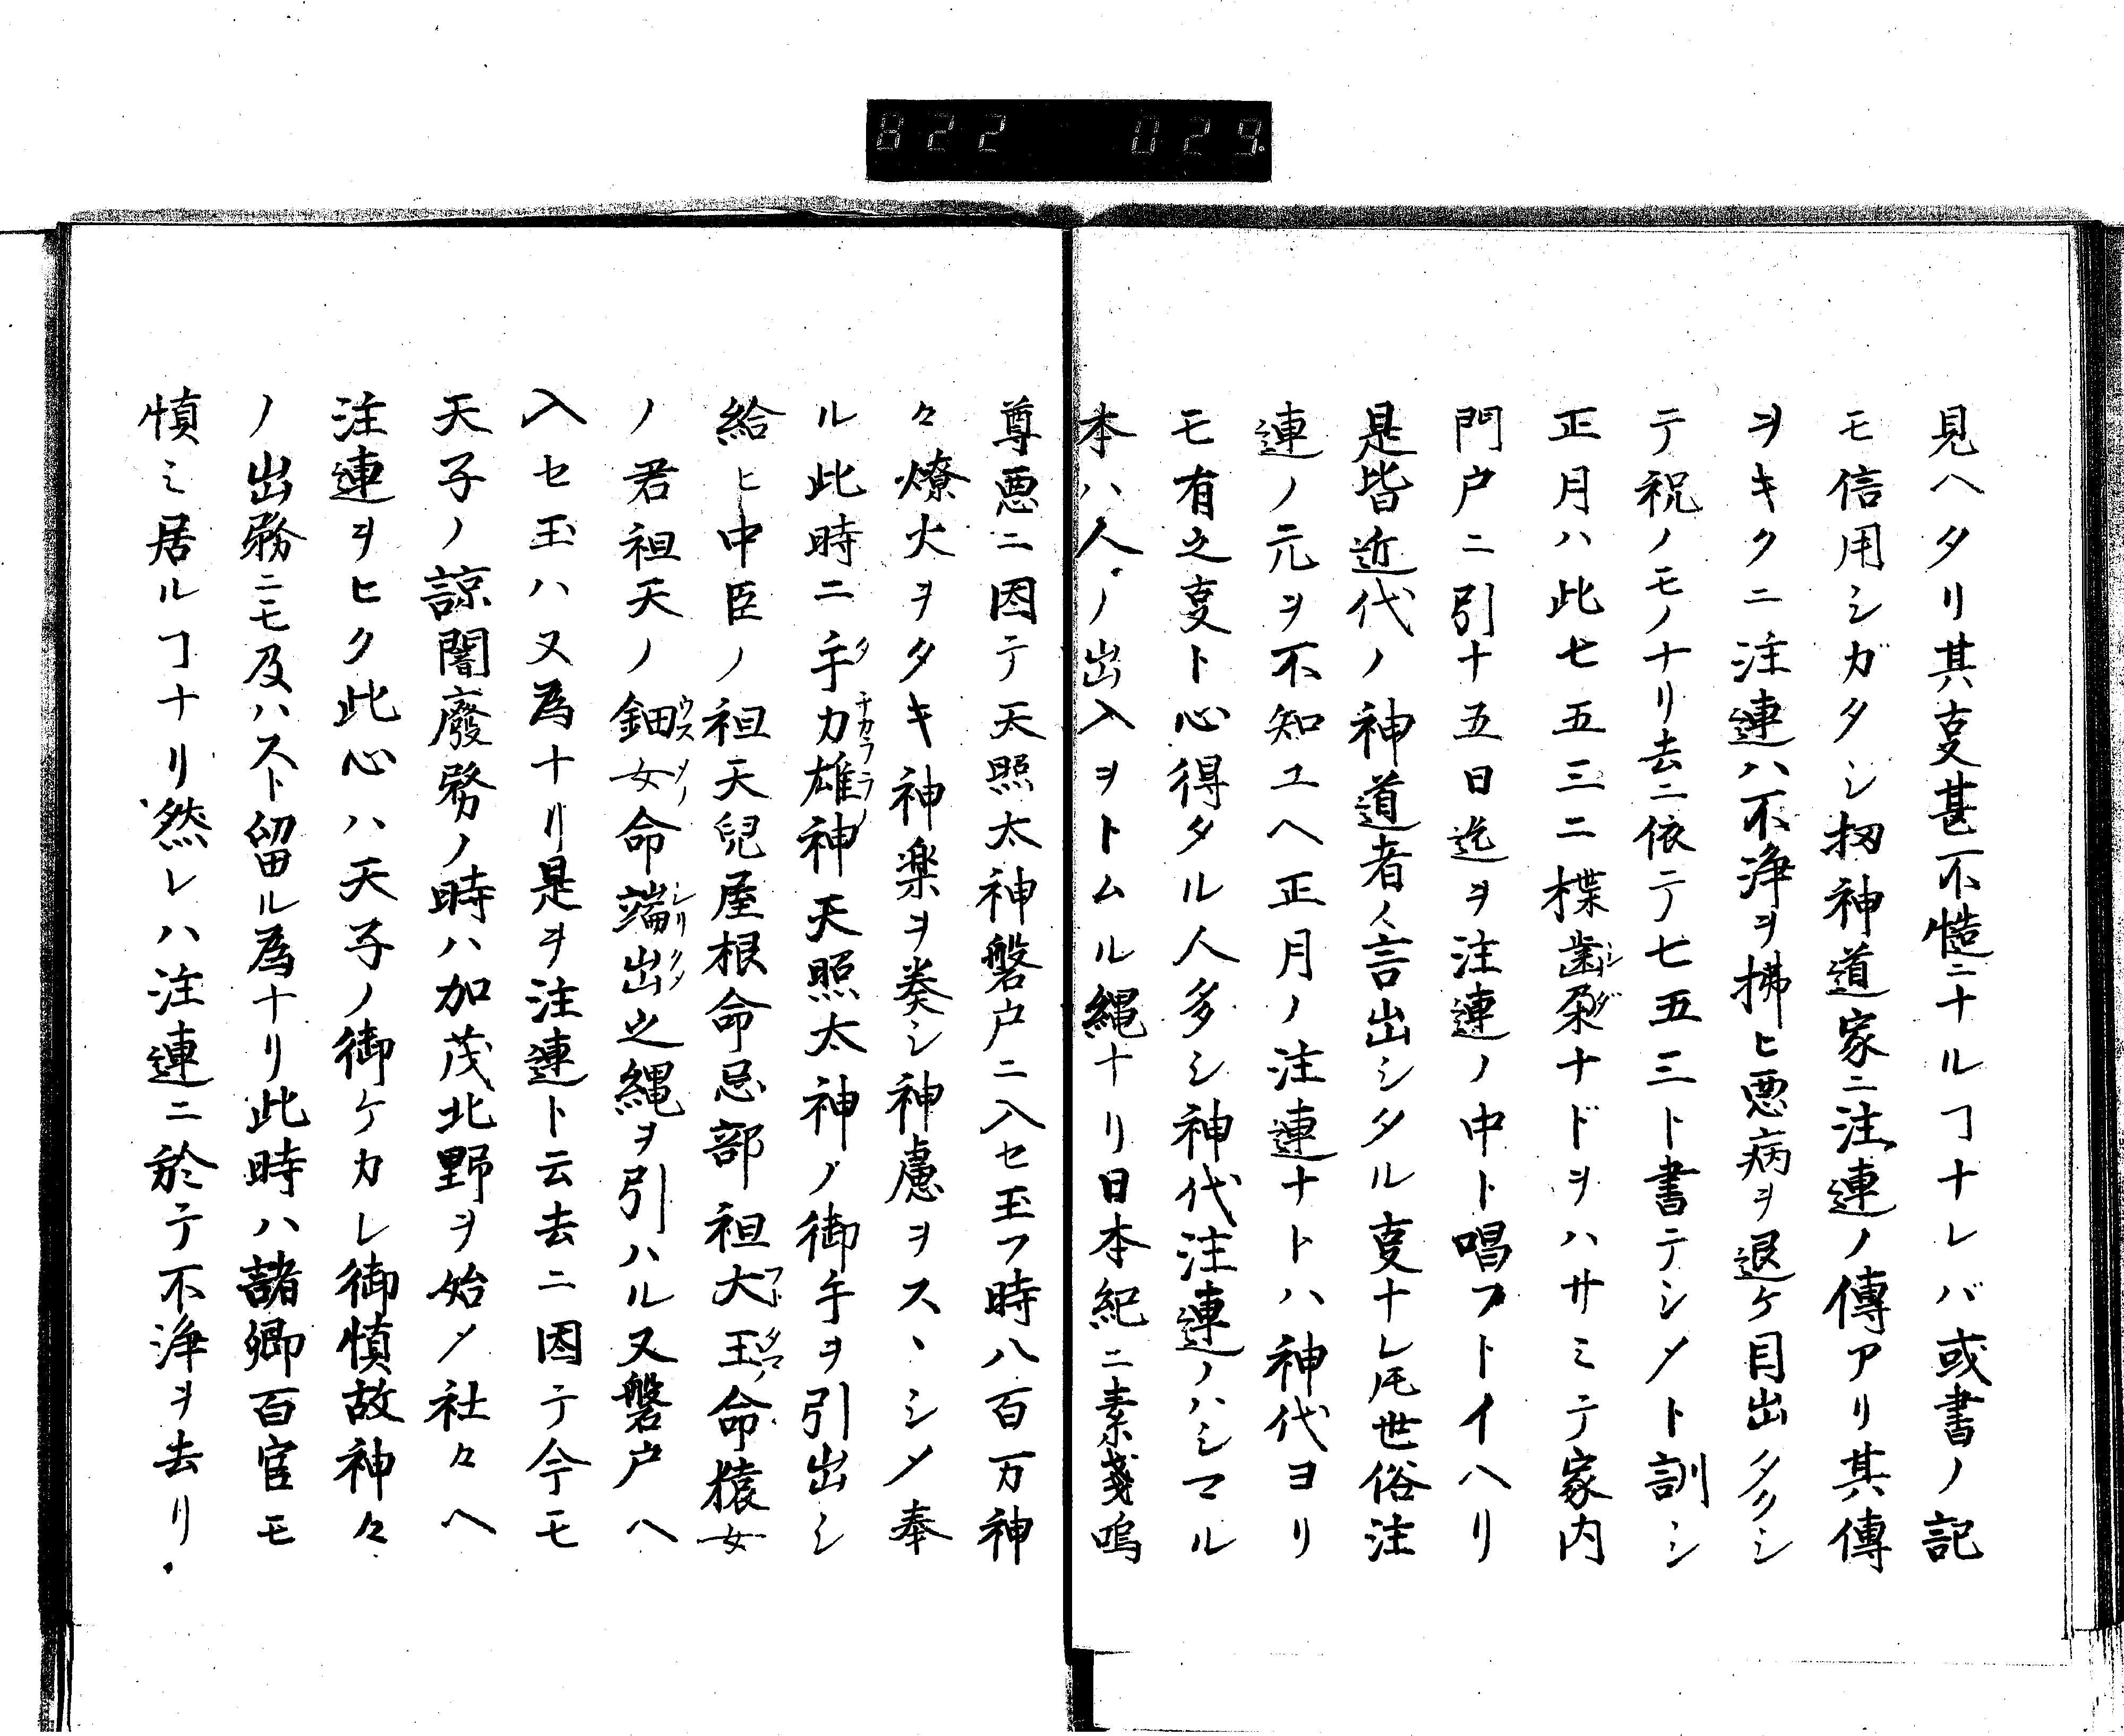 822 029
見ヘタリ其㕝甚不慥ニナルヿナレバ或書ノ記
モ信用シガタシ扨神道家ニ注連ノ傳アリ其傳
ヲキクニ注連ハ不浄ヲ拂ヒ悪病ヲ退ケ目出タクシ
テ祝ノモノナリ去ニ依テ七五三ト書テシメト訓シ
正月ハ此七五三ニ楪歯朶ナドヲハサミテ家内
門戸ニ引十五日迄ヲ注連ノ中ト唱フトイヘリ
是皆近代ノ神道者ノ言出シタル㕝ナレ𪜈世俗注
連ノ元ヲ不知ユヘ正月ノ注連ナトハ神代ヨリ
モ有之㕝ト心得タル人多シ神代注連ノハシマル
本ハ人ノ出入ヲトムル縄ナリ日本紀ニ素戔嗚
尊悪ニ因テ天照太神磐戸ニ入セ玉フ時八百万神
々燎火ヲタキ神楽ヲ奏シ神慮ヲスヽシメ奉
ル此時ニ手力雄神天照太神ノ御手ヲ引出シ
給ヒ中臣ノ祖天兒屋根命忌部祖太玉命猿女
ノ君祖天ノ鈿女命端出之縄ヲ引ハル又磐戸ヘ
入セ玉ハヌ為ナリ是ヲ注連ト云去ニ因テ今モ
天子ノ諒闇廢務ノ時ハ加茂北野ヲ始メ社々ヘ
注連ヲヒク此心ハ天子ノ御ケカレ御慎故神々
ノ出務ニモ及ハスト留ル為ナリ此時ハ諸卿百官モ
慎ミ居ルヿナリ然レハ注連ニ於テ不浄ヲ去リ